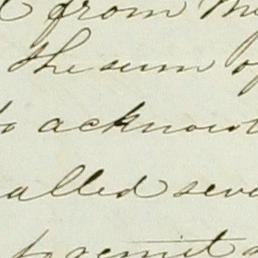 from
the sum of
to acknowl
alled seve
to remit